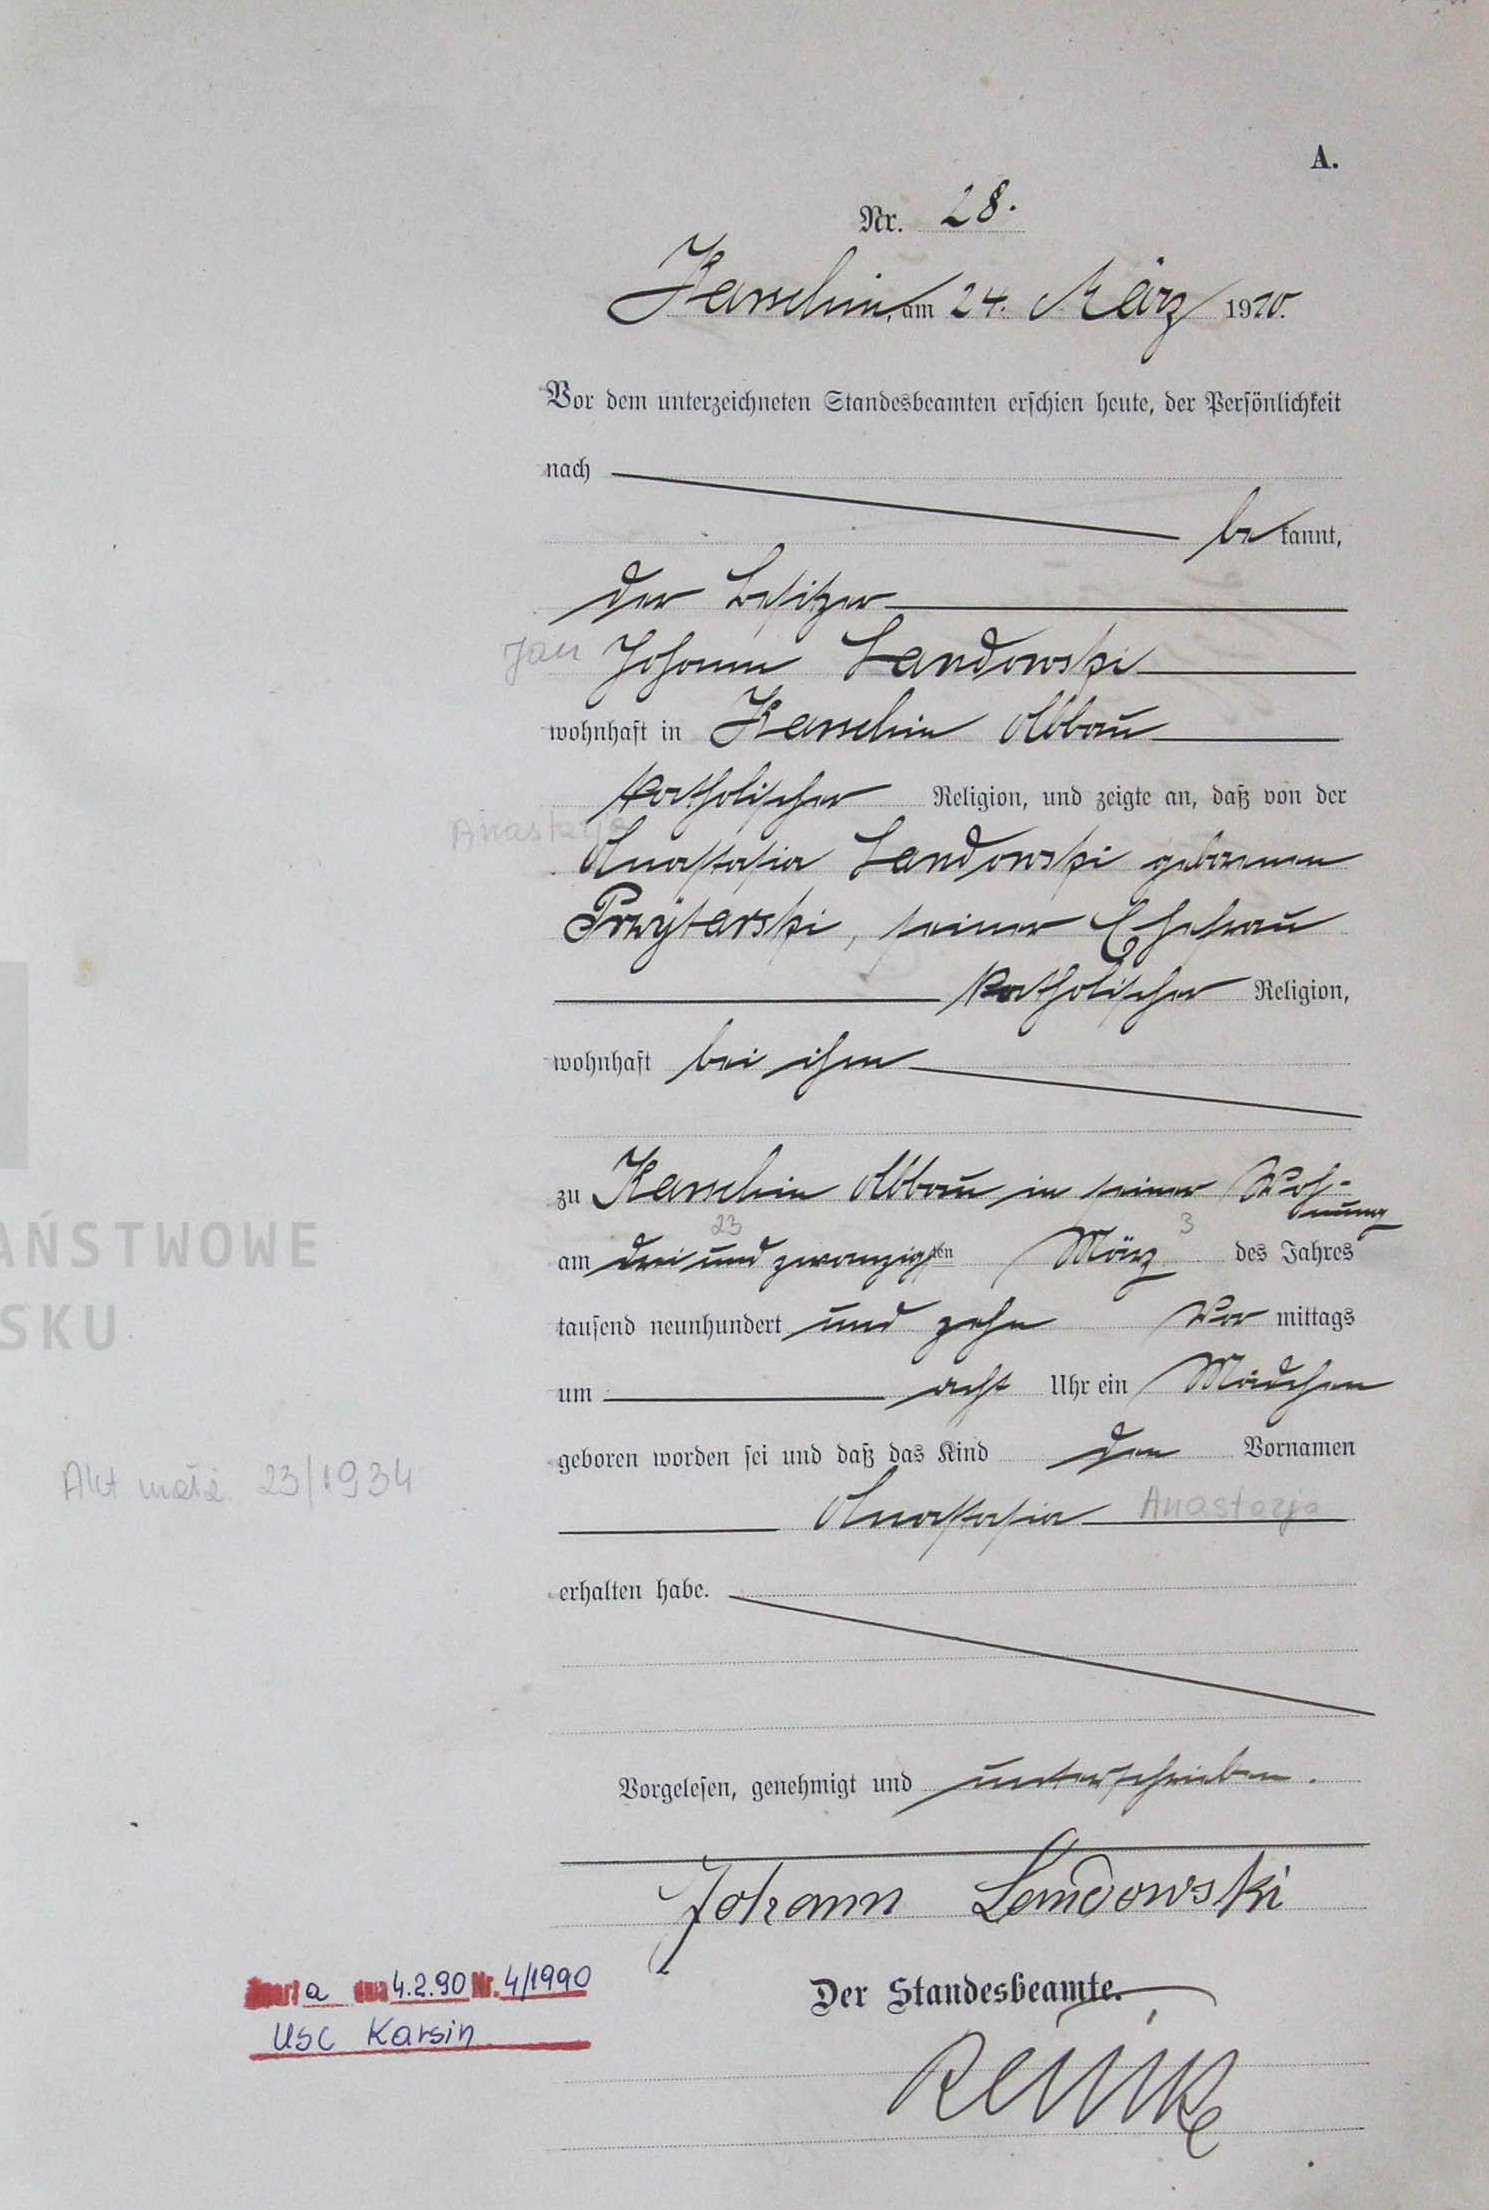 A.
Nr. 28.
Karschin, am 24. März 1910.
Vor dem unterzeichneten Standesbeamten erschien heute, der Persönlichkeit
nach
be kannt,
der Besitzer
Jan Johann Landowski
wohnhaft in Karschin Abbau
katholischer Religion, und zeigte an, daß von der
Anastazja
Anastasia Landowski geborenen
Przytarski, seiner Ehefrau
katholischer Religion,
wohnhaft bei ihm
zu Karschin Abbau in seiner Woh-
nung
23 3
am drei und zwanzigsten März des Jahres
tausend neunhundert und zehn Vor mittags
um acht Uhr ein Mädchen
geboren worden sei und daß das Kind den Vornamen
Akt małż. 23/1934
Anastasia Anastazja
erhalten habe.
Vorgelesen, genehmigt und unterschrieben.
Johann Landowski
Der Standesbeamte.
a dnia 4.2.90 Nr. 4/1990
USC Karsin
AŃSTWOWE
SKU